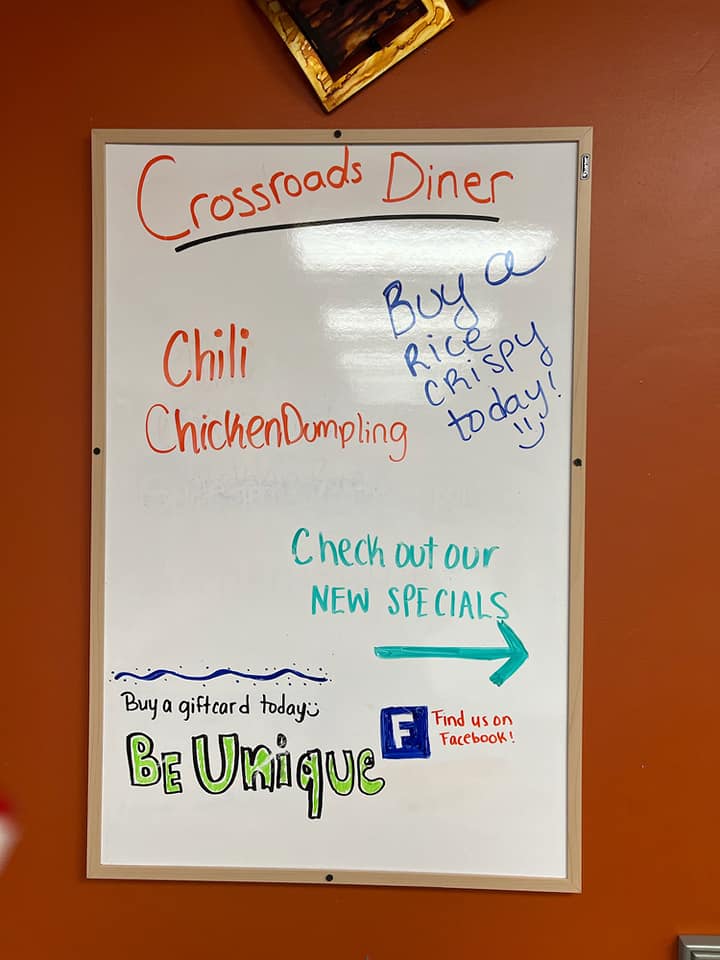 Crossroads Diner
Buy a
RICE
CRISPY
today!
Chili
ChickenDumpling
Check out our
NEW SPECIALS
Buy a giftcard today
BE UNIQUE
F
Find us on
Facebook!